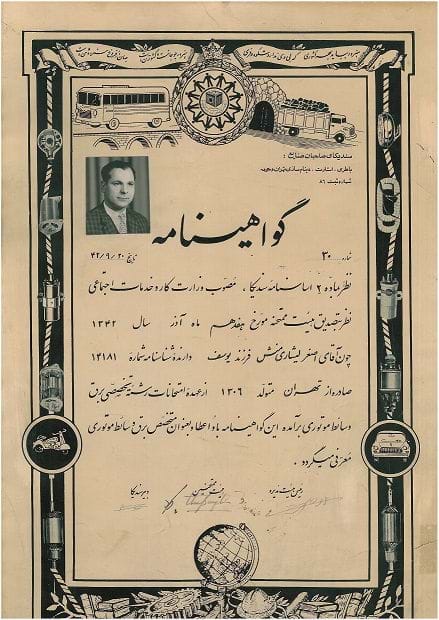 سندیکای صاحبان صنایع :
باطری ، استارت ، دینام سازی تهران و حومه
شماره ثبت ۸۶
گواهینامه
شماره ۳۰
تاریخ ۴۲/۹/۲۰
نظر بماده ۲ اساسنامه سندیکا ، مصوب وزارت کار و خدمات اجتماعی
نظر بتصدیق هیئت ممتحنه مورخ هفدهم ماه آذر سال ۱۳۴۲
چون آقای اصغر لیشاری منش فرزند یوسف دارنده شناسنامه شماره ۱۴۱۸۱
صادره از تهران متولد ۱۳۰۶ از عهده امتحانات رشته تخصصی برق
وسائط موتوری برآمده این گواهینامه باو اعطاء و بعنوان متخصص برق وسائط موتوری
معرفی میگردد .
رئیس هیئت مدیره
دبیر سندیکا